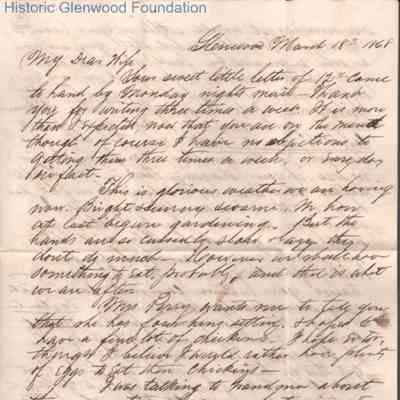 Historic Glenwood Foundation
Glenwood March 18th 1868
My Dear Wife
Your sweet little letter of 12th came
to hand by Monday nights mail - Thank
you for writing three times a week. It is more
than I expected, now that you are on the
though of course I have no objections to
getting them three times a week, or every day
in fact.
This is glorious weather we are having
now. Bright & warm. We have
at last begun gardening. But the
hands are so
don't do much - However we should have
something to eat, probably, and that is what
we are after.
Mrs Perry wants me to tell you
that she has four hens setting, & hopes to
have a fine lot of chickens. I hope so too,
though I believe I would rather have plenty
of eggs to eat than chickens -
I was talking to Grandma about